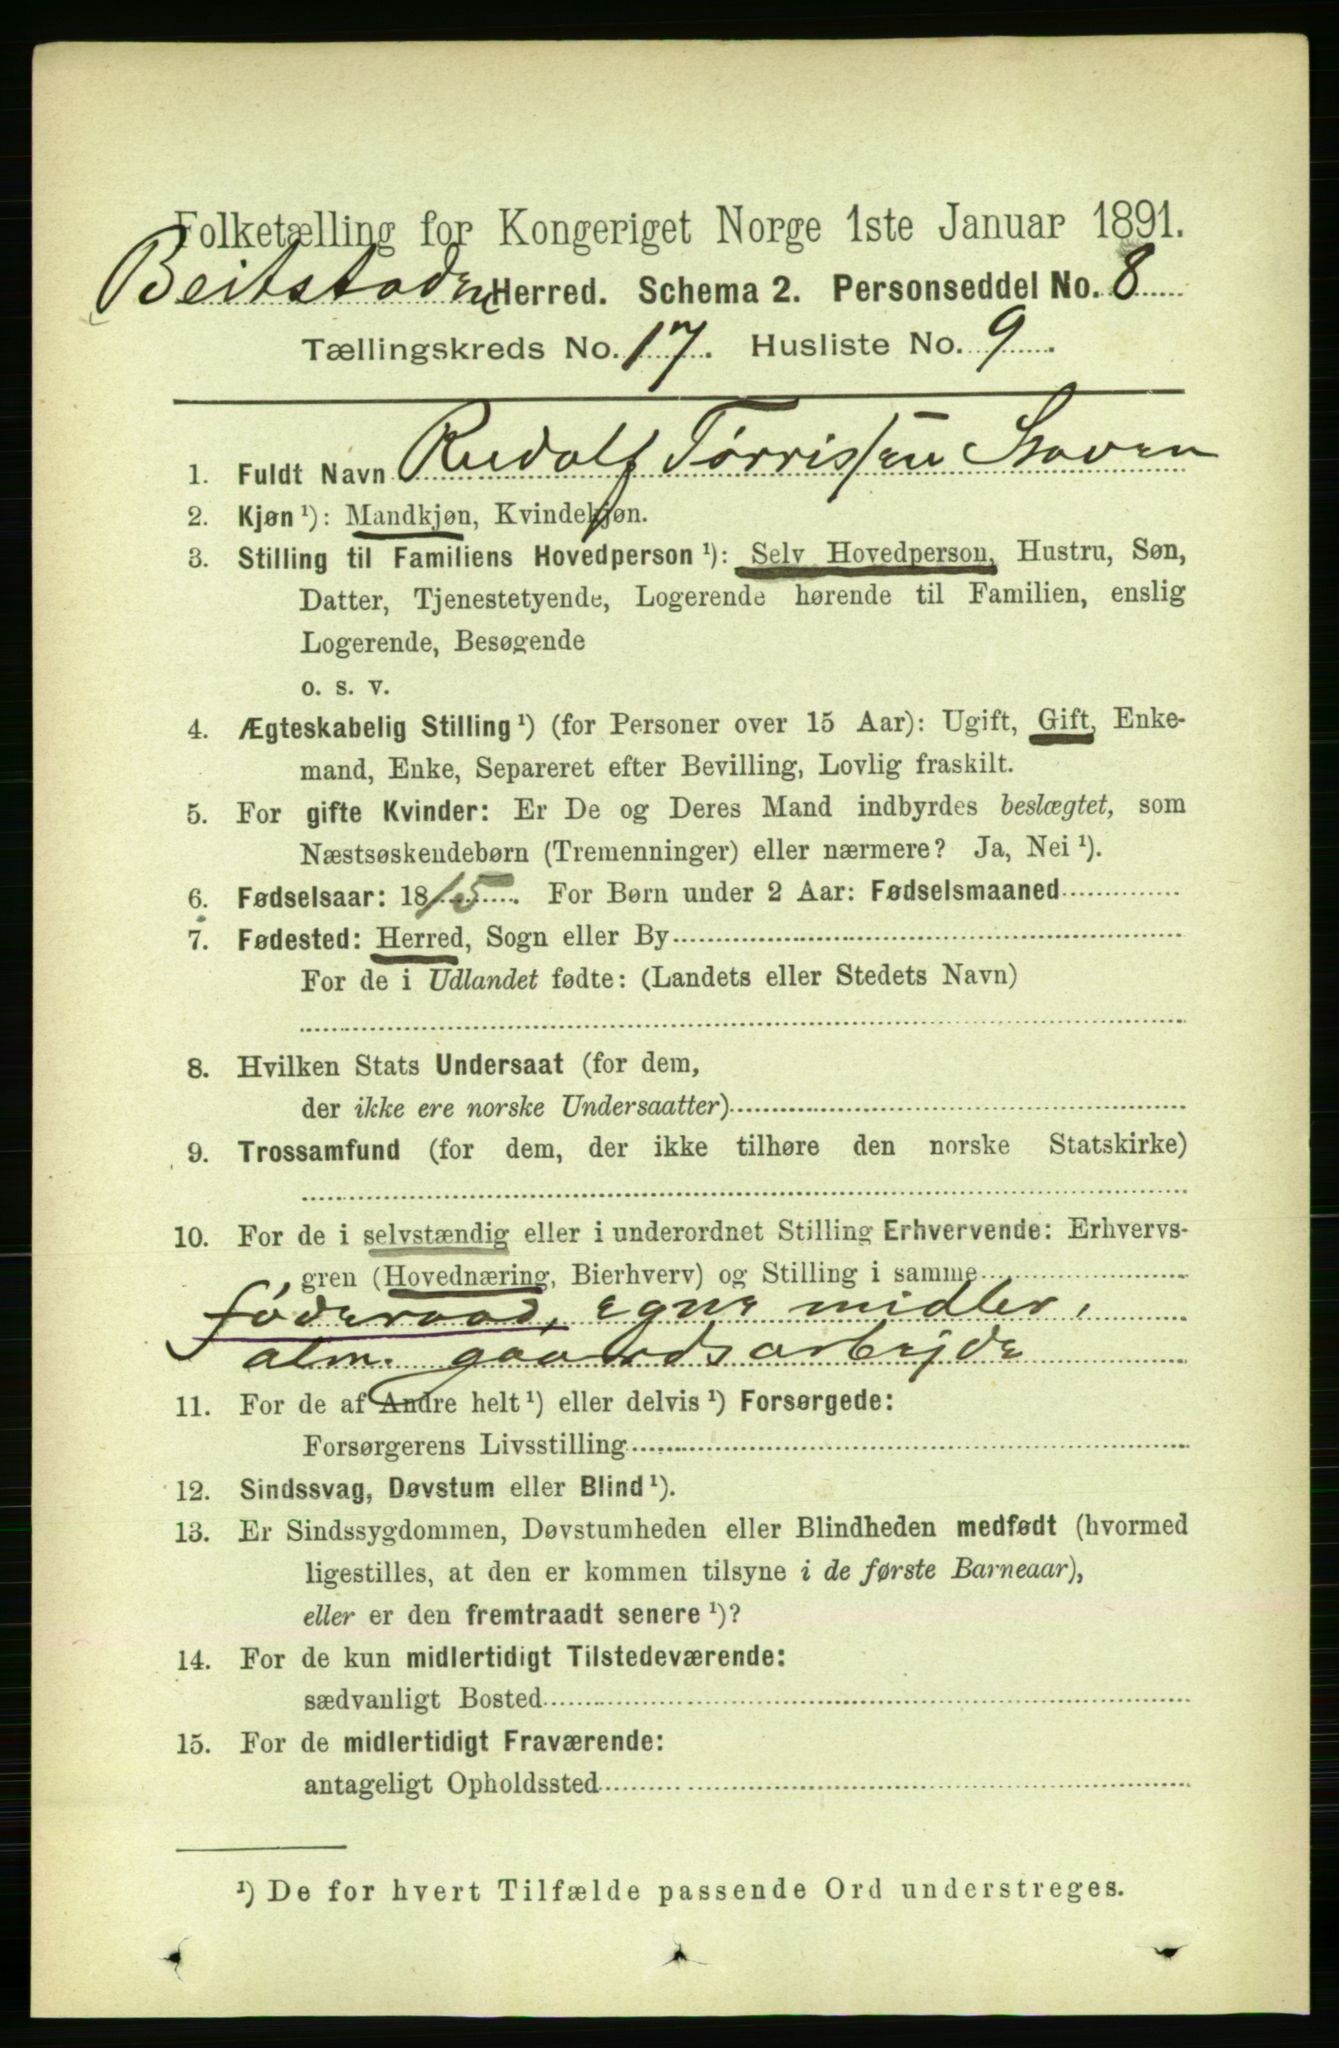 Folketælling for Kongeriget Norge 1ste Januar 1891.
Beitstaden Herred. Schema 2. Personseddel No. 8
Tællingskreds No. 17. Husliste No. 9.
1. Fuldt Navn Rudolf Tørrissen Staven
2. Kjøn ¹): Mandkjøn, Kvindekjøn.
3. Stilling til Familiens Hovedperson ¹): Selv Hovedperson, Hustru, Søn,
Datter, Tjenestetyende, Logerende hørende til Familien, enslig
Logerende, Besøgende
o. s. v.
4. Ægteskabelig Stilling ¹) (for Personer over 15 Aar): Ugift, Gift, Enke-
mand, Enke, Separeret efter Bevilling, Lovlig fraskilt.
5. For gifte Kvinder: Er De og Deres Mand indbyrdes beslægtet, som
Næstsøskendebørn (Tremenninger) eller nærmere? Ja, Nei ¹).
6. Fødselsaar: 1815. For Børn under 2 Aar: Fødselsmaaned
7. Fødested: Herred, Sogn eller By
For de i Udlandet fødte: (Landets eller Stedets Navn)
8. Hvilken Stats Undersaat (for dem,
der ikke ere norske Undersaatter)
9. Trossamfund (for dem, der ikke tilhøre den norske Statskirke)
10. For de i selvstændig eller i underordnet Stilling Erhvervende: Erhvervs-
gren (Hovednæring, Bierhverv) og Stilling i samme
føderaad, egne midler,
alm. gaardsarbejde
11. For de af Andre helt ¹) eller delvis ¹) Forsørgede:
Forsørgerens Livsstilling
12. Sindssvag, Døvstum eller Blind ¹).
13. Er Sindssygdommen, Døvstumheden eller Blindheden medfødt (hvormed
ligestilles, at den er kommen tilsyne i de første Barneaar),
eller er den fremtraadt senere ¹)?
14. For de kun midlertidigt Tilstedeværende:
sædvanligt Bosted
15. For de midlertidigt Fraværende:
antageligt Opholdssted
¹) De for hvert Tilfælde passende Ord understreges.